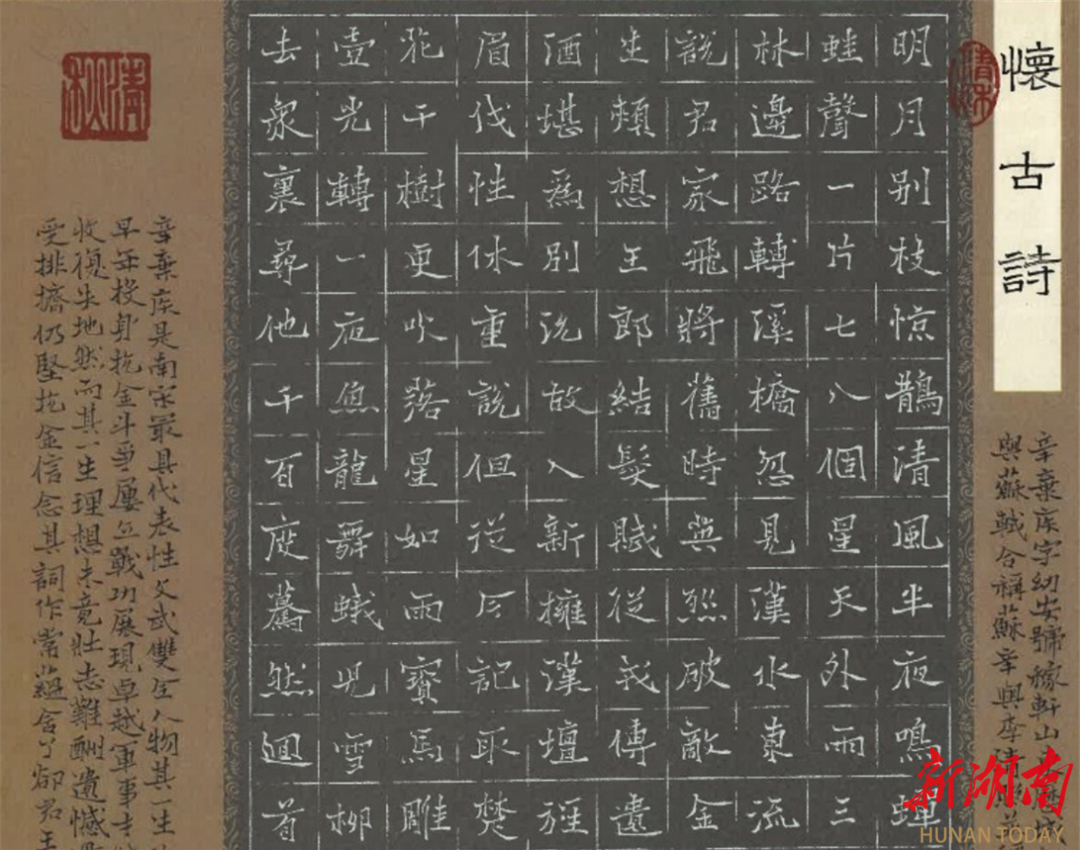 懷古詩
辛棄疾字幼安號稼軒山
與蘇軾合稱蘇辛與李清
明月别枝惊鵲清風半夜鳴蟬
蛙聲一片七八個星天外雨三
林邊路轉溪橋忽見漢水東流
說君家飛將舊時英烈破敵金
生頰想王郎結髮賦從戎傳遺
酒堪爲别況故人新擁漢壇旌
眉伐性休重說但從今記取楚
花千樹更吹落星如雨寶馬雕
壺光轉一夜魚龍舞蛾兒雪柳
去衆裏尋他千百度驀然迴首
辛棄疾是南宋最具代表性文武雙全人物其一生
早年投身抗金斗爭屢立戰功展現卓越軍事才
收復失地然而其一生理想未竟壯志難酬遺憾
受排擠仍堅抗金信念其詞作常蘊含了卻君王
新湖南
HUNAN TODAY